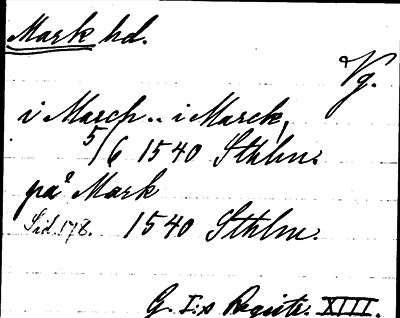 Mark hd.
Vg.
i March .. i Marck,
5/6 1540 Sthlm.
på Mark
Sid. 178. 1540 Sthlm.
G. I:s Registr. XIII.